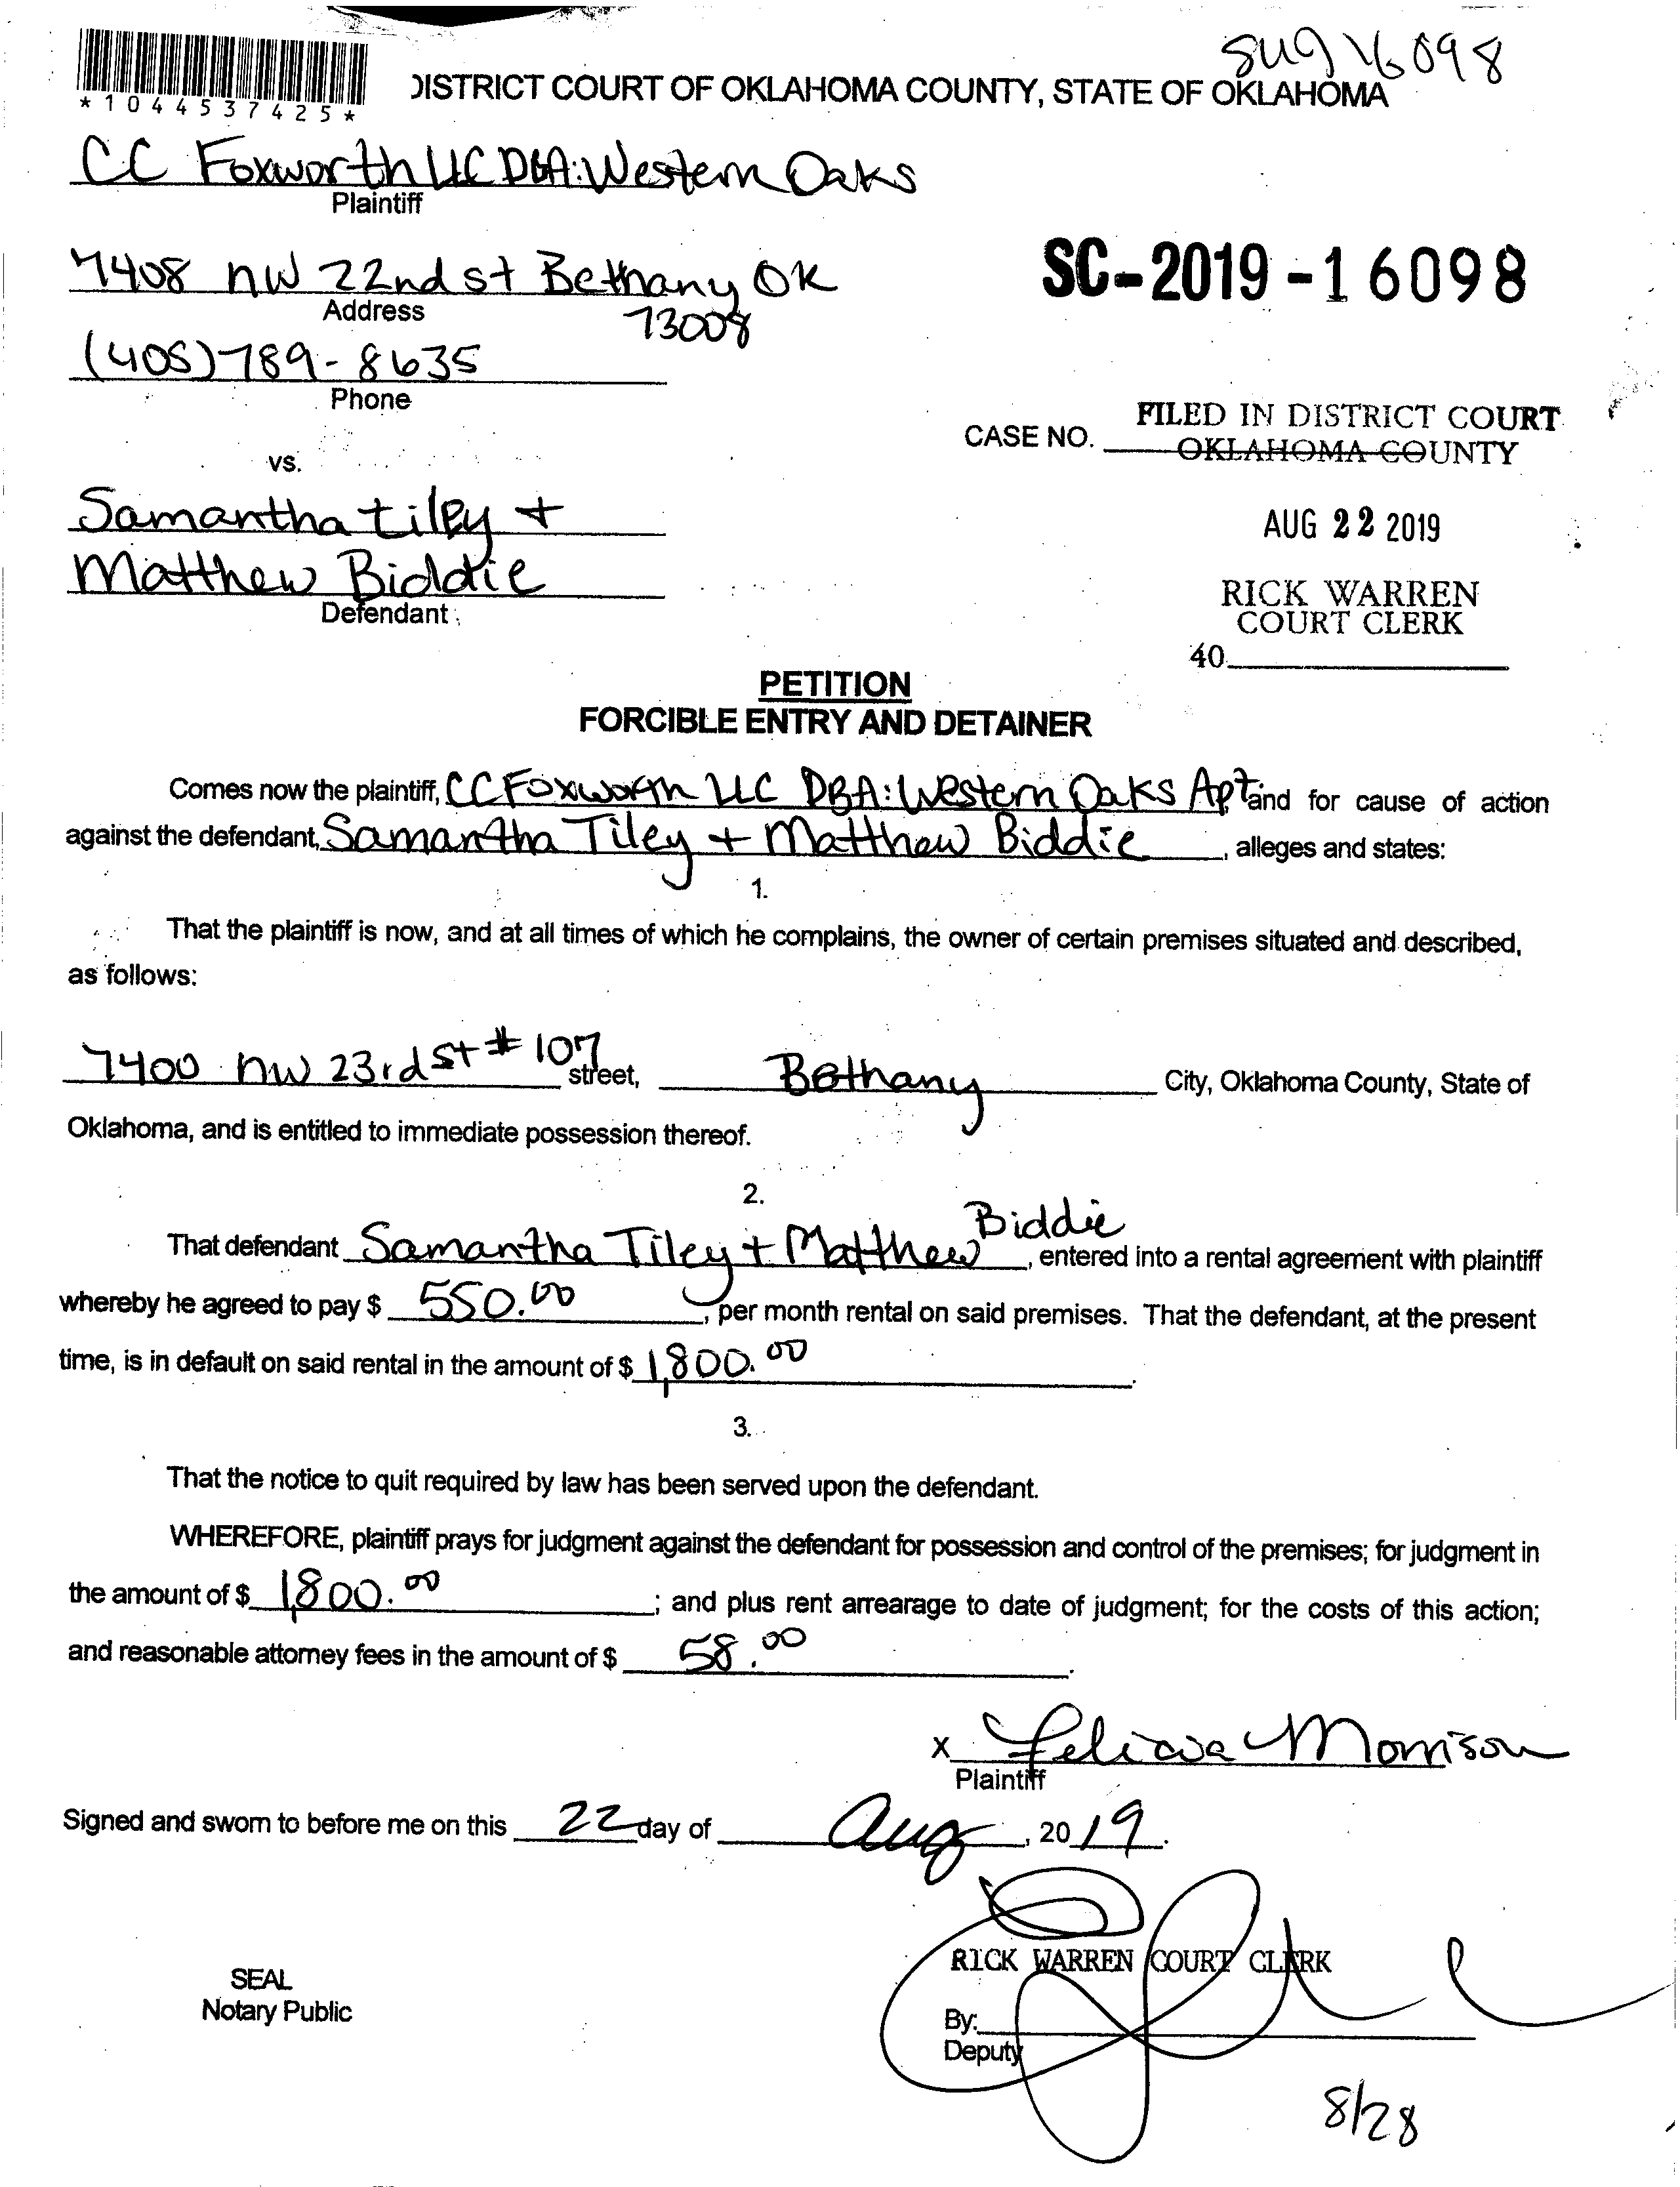 SC19 16098
*1044537425*
DISTRICT COURT OF OKLAHOMA COUNTY, STATE OF OKLAHOMA
CC Foxworth LLC DBA: Western Oaks
Plaintiff
7408 NW 22nd St Bethany OK
Address
73008
SC-2019-16098
(405)789-8635
Phone
FILED IN DISTRICT COURT
CASE NO. OKLAHOMA COUNTY
vs.
Samantha Tiley +
AUG 22 2019
Matthew Biddie
Defendant
RICK WARREN
COURT CLERK
40
PETITION
FORCIBLE ENTRY AND DETAINER
Comes now the plaintiff, CC Foxworth LLC DBA: Western Oaks Apt and for cause of action
against the defendant, Samantha Tiley + Matthew Biddie, alleges and states:
1.
That the plaintiff is now, and at all times of which he complains, the owner of certain premises situated and described,
as follows:
7400 NW 23rd St # 107 street, Bethany City, Oklahoma County, State of
Oklahoma, and is entitled to immediate possession thereof.
2.
That defendant Samantha Tiley + Matthew Biddie, entered into a rental agreement with plaintiff
whereby he agreed to pay $ 550.00, per month rental on said premises. That the defendant, at the present
time, is in default on said rental in the amount of $ 1,800.00.
3.
That the notice to quit required by law has been served upon the defendant.
WHEREFORE, plaintiff prays for judgment against the defendant for possession and control of the premises; for judgment in
the amount of $ 1,800.00; and plus rent arrearage to date of judgment; for the costs of this action;
and reasonable attorney fees in the amount of $ 58.00.
X Felicia Morrison
Plaintiff
Signed and sworn to before me on this 22 day of Aug, 2019.
RICK WARREN COURT CLERK
SEAL
Notary Public
By:
Deputy
8/28